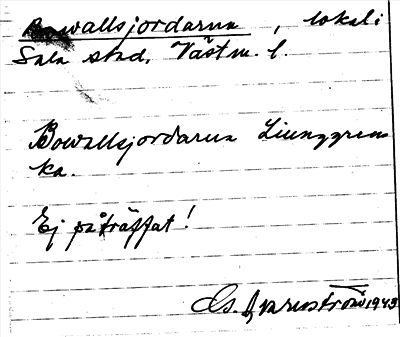 Bowallsjordarna, lokal i
Sala stad, Västm. l.
Bowallsjordarna Ljunggrens
ka.
Ej påträffat!
1943